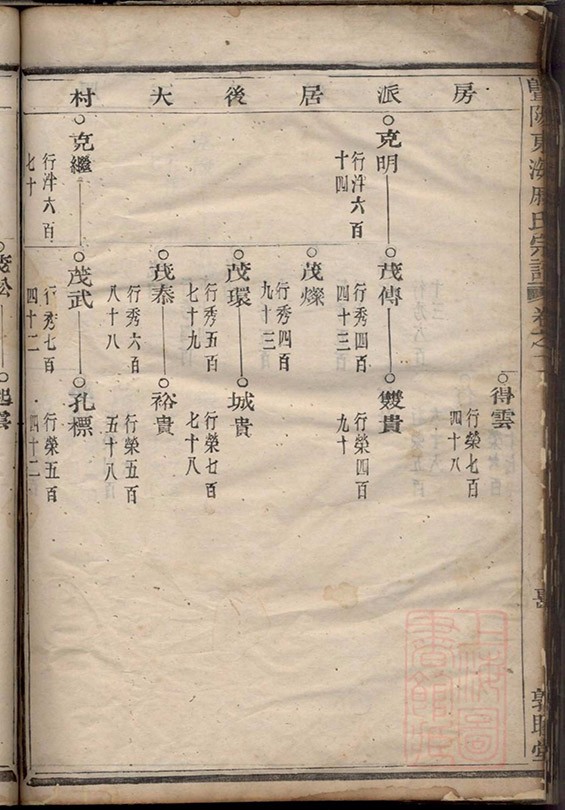 暨陽東海 氏宗譜 卷之
房派居後大村
得雲
行榮七百
四十八
克明
行洋六百
十四
茂傳
行秀四百
四十三
雙貴
行榮四百
九十
茂燦
行秀四百
九十三
茂環
行秀五百
七十九
城貴
行榮七百
七十八
茂泰
行秀六百
八十八
裕貴
行榮五百
五十八
克繼
行洋六百
七十
茂武
行秀七百
四十二
孔標
行榮五百
四十二
茂松
起雲
上海圖書館藏